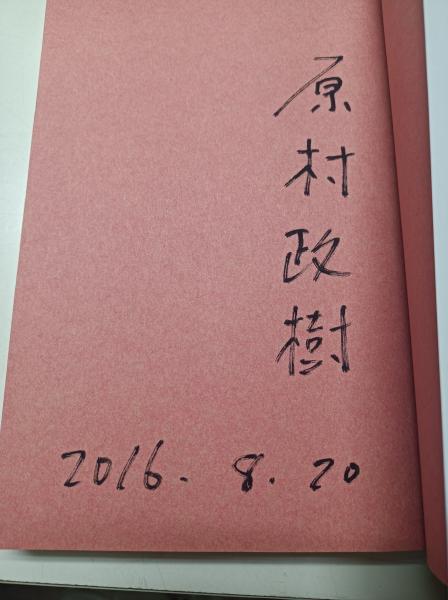 原村政樹
2016. 8. 20